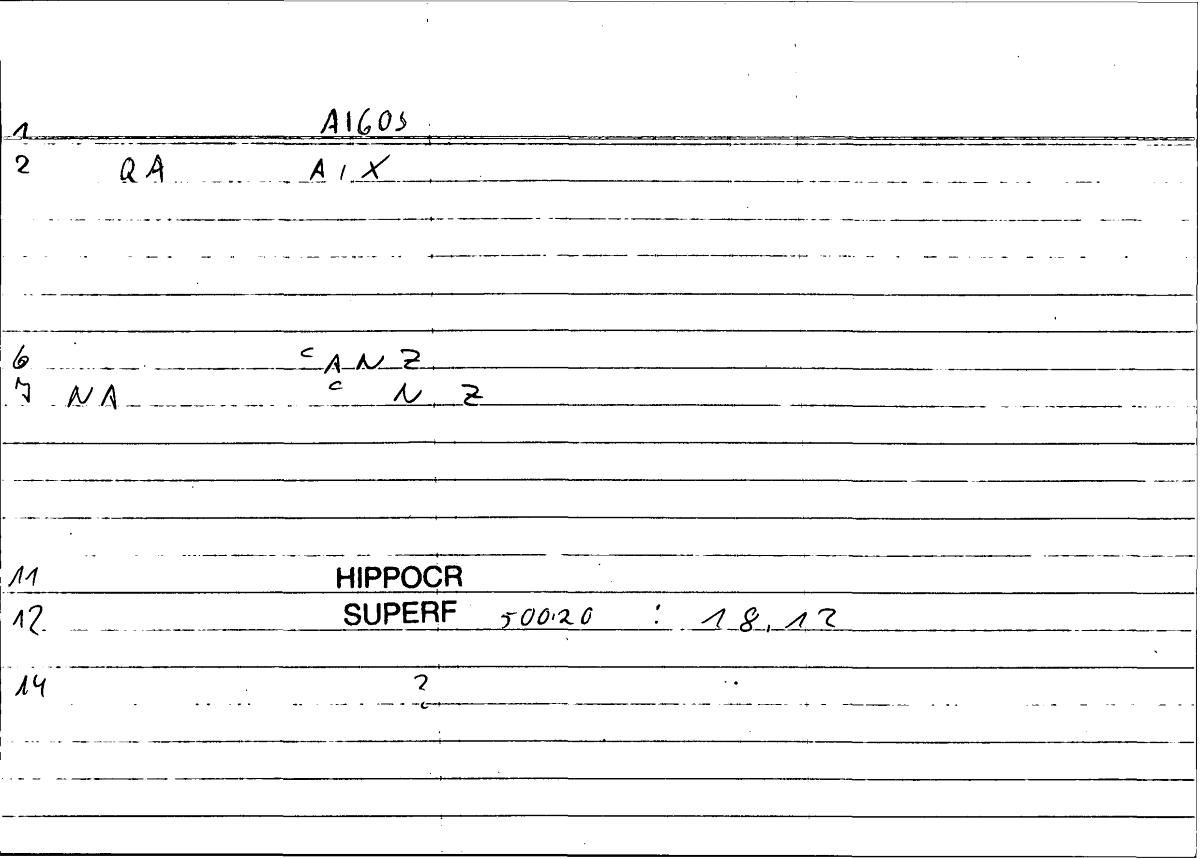 1 A160S
2 QA A I X
6 c A N Z
7 NA c N Z
11 HIPPOCR
12 SUPERF 500.20 : 18,12
14 ?